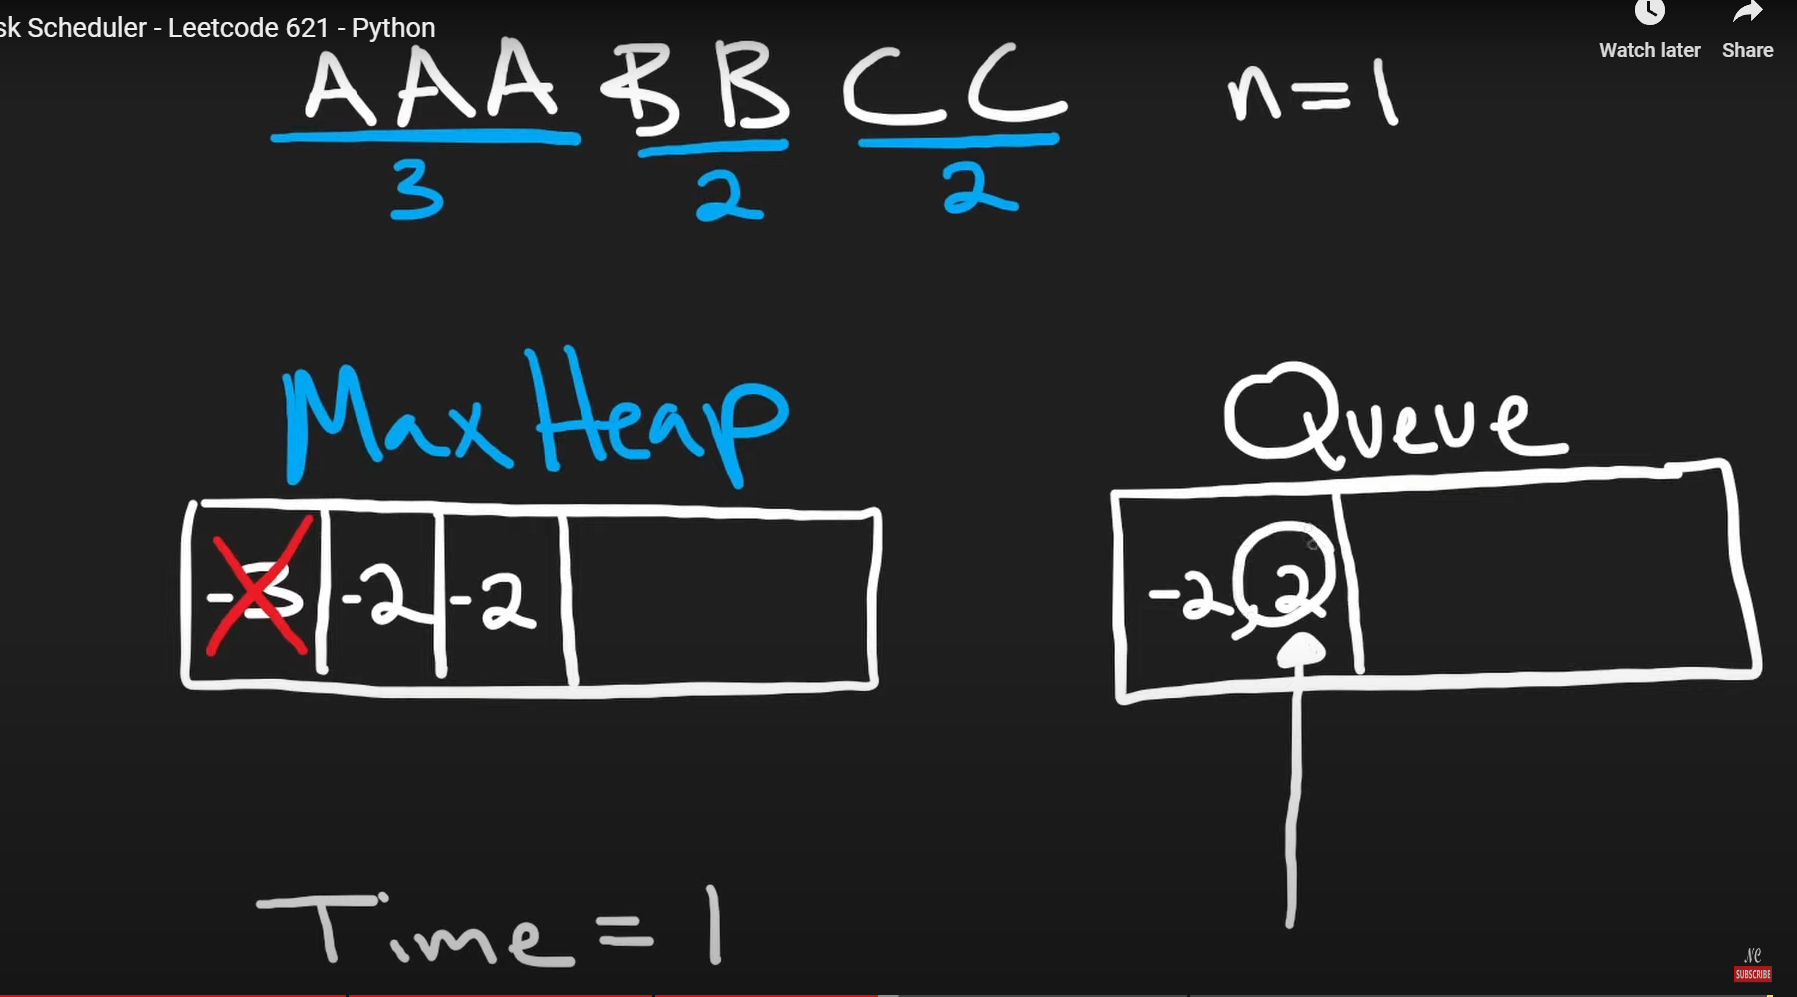 sk Scheduler - Leetcode 621 - Python
Watch later Share
A A A B B C C n=1
3 2 2
Max Heap
Queue
-3 -2 -2
-2, 2
Time = 1
NC
SUBSCRIBE